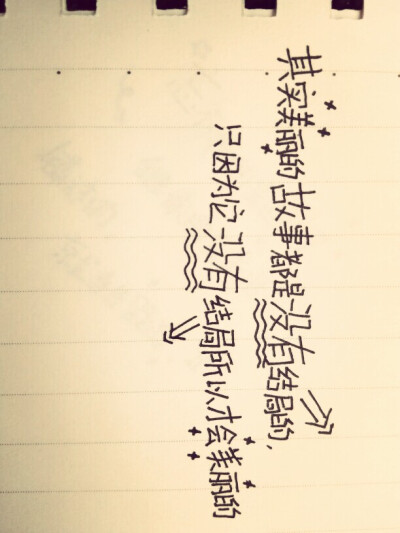 其实美丽的故事都是没有结局的,
只因为它没有结局所以才会美丽的